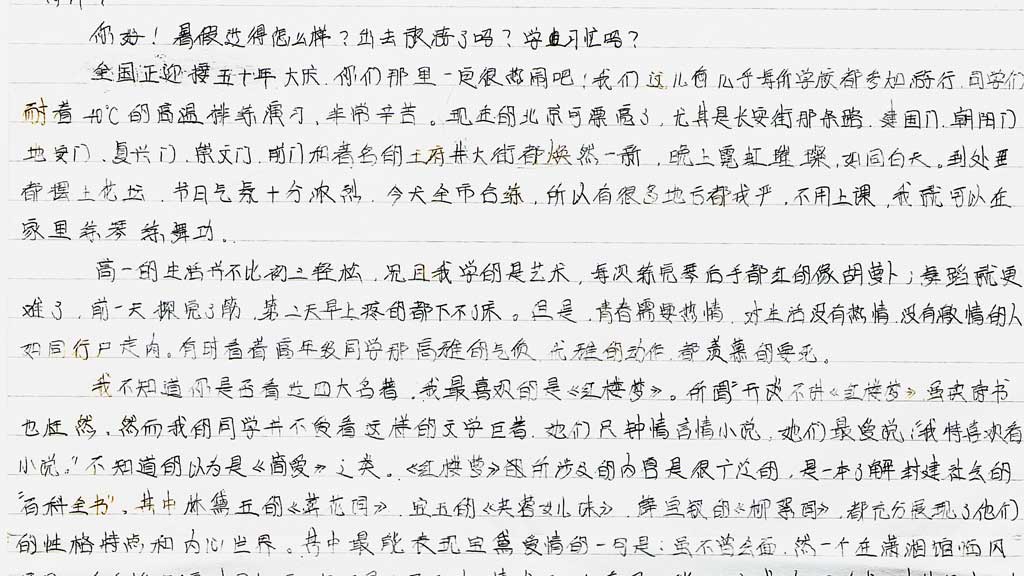 你好！暑假过得怎么样？出去旅游了吗？学习忙吗？
全国正迎接五十年大庆，你们那里一定很热闹吧！我们这儿有几乎每所学校都参加游行，同学们
耐着40℃的高温排练演习，非常辛苦。现在的北京可漂亮了，尤其是长安街那条路，建国门、朝阳门
地安门、复兴门、崇文门、前门和著名的王府井大街都焕然一新，晚上霓虹璀璨，如同白天。到处要
都摆上花坛，节日气氛十分浓烈，今天全市合练，所以有很多地方都戒严，不用上课，我就可以在
家里练琴练舞功。
高一的生活并不比初三轻松，况且我学的是艺术，每次练完琴后手都红的像胡萝卜；舞蹈就更
难了，前一天撕完了筋，第二天早上疼的都下不了床。但是，青春需要热情，对生活没有热情，没有激情的人
如同行尸走肉。有时看着高年级同学那高雅的气质，优雅的动作，都羡慕的要死。
我不知道你是否看过四大名著，我最喜欢的是《红楼梦》。所谓“开谈不讲《红楼梦》虽读诗书
也枉然，然而我的同学并不爱看这样的文学巨著，她们只钟情言情小说，她们最爱说：“我特喜欢看
小说。”不知道的以为是《简爱》之类。《红楼梦》所涉及的内容是很广泛的，是一本了解封建社会的
“百科全书”，其中林黛玉的《葬花词》，宝玉的《芙蓉女儿诔》，薛宝钗的《柳絮词》，都充分展现了他们
的性格特点和内心世界。其中最能表现宝黛爱情的一句是：虽不曾会面，然一个在潇湘馆临风